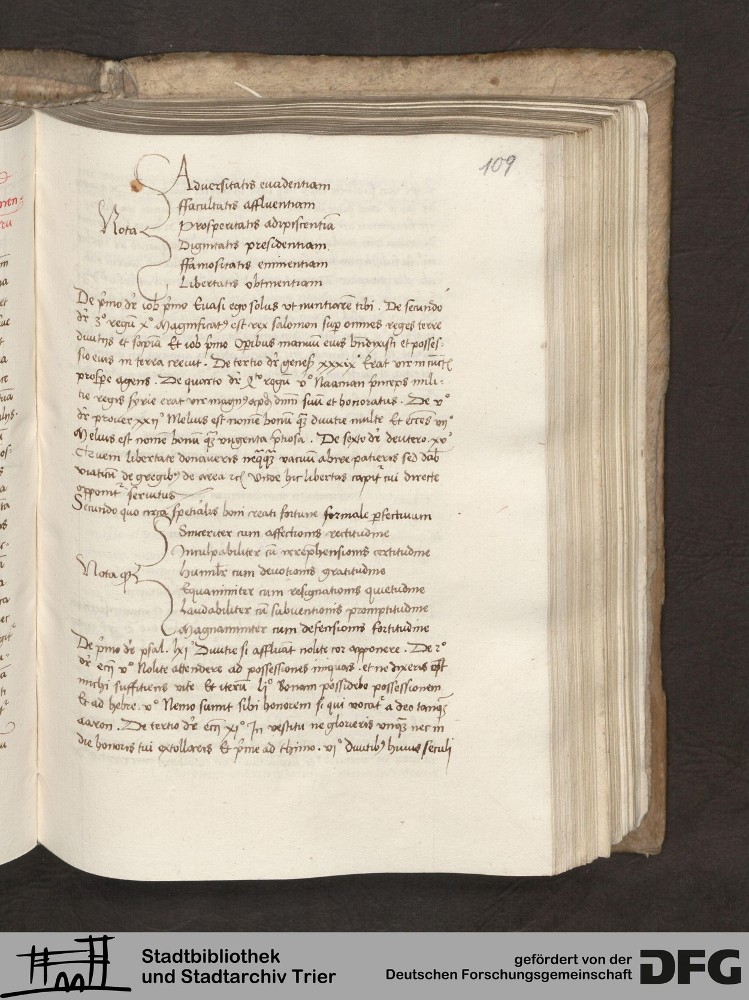 109
Adversitatis evadentiam
ffacultatis affluentiam
Prosperitatis adipiscentiā
Nota
Dignitatis presidentiam
ffamositatis eminentiam
Libertatis obtinentiam
De pͥmo dr̄ iob pͥmo Evasi ego solus vt nuntiarē tibi . De secundo
dr̄ 3° regū x° Magnificatꝰ est rex salomon suꝑ omnes reges terre
divitijs et sapīa Et iob pͥmo Opibus manuū eius bn̄dixisti et posses-
sio eius in terra crevit . De tertio dr̄ geneͥ xxxix° Erat vir in cunctꝭ
prosꝑe agens . De quarto dr̄ 4ͭͦ regū v° Naaman pͥnceps mili-
tie regis syrie erat vir magnꝰ apd̓ dn̄m suū et honoratus . De v°
dr̄ prover xxij° Melius est nomē bonū qͣꝫ divitie multe Et eccēs vij°
Melius est nomē bonū qͣꝫ ungenta pͥtiosa . De sexto dr̄ deutero xv°
Quem libertate donaveris neqͣqͣꝫ vacuū abire patieris sed dab̓
viaticū de gregibꝰ de area rc̄ Unde hic libertas capitͬ cui directe
opponitͬ servitus
Secundo quo circa spetialis boni creati fortune formale ꝑfectivum
Sinceriter cum affectionis rectitudine
Inculpabiliter cū irrep̄hensionis certitudine
Nota
humil̓r cum devotionis gratitudine
Equanimiter cum resignationis quietudine
Laudabiliter cū subventionis promptitudine
Magnanimiter cum defensionis fortitudine
De pͥmo dr̄ psal. lxi° Divitie si affluāt nolite cor apponere . De 2°
dr̄ ecc̄i v° Nolite attendere ad possessiones iniquas . et ne dixeris est
michi sufficiens vite Et iterū li° Bonam possidebo possessionem
Et ad hebre. v° Nemo sumit sibi honorem si qui vocatͬ a deo tanqͣꝫ
aaron . De tertio dr̄ ecc̄i xi° In vestitu ne glorieris unqͣꝫ nec in
die honoris tui extollaris Et pͥme ad thimo . vi° divitibꝰ huius seculi
Stadtbibliothek
und Stadtarchiv Trier
gefördert von der
Deutschen Forschungsgemeinschaft
DFG